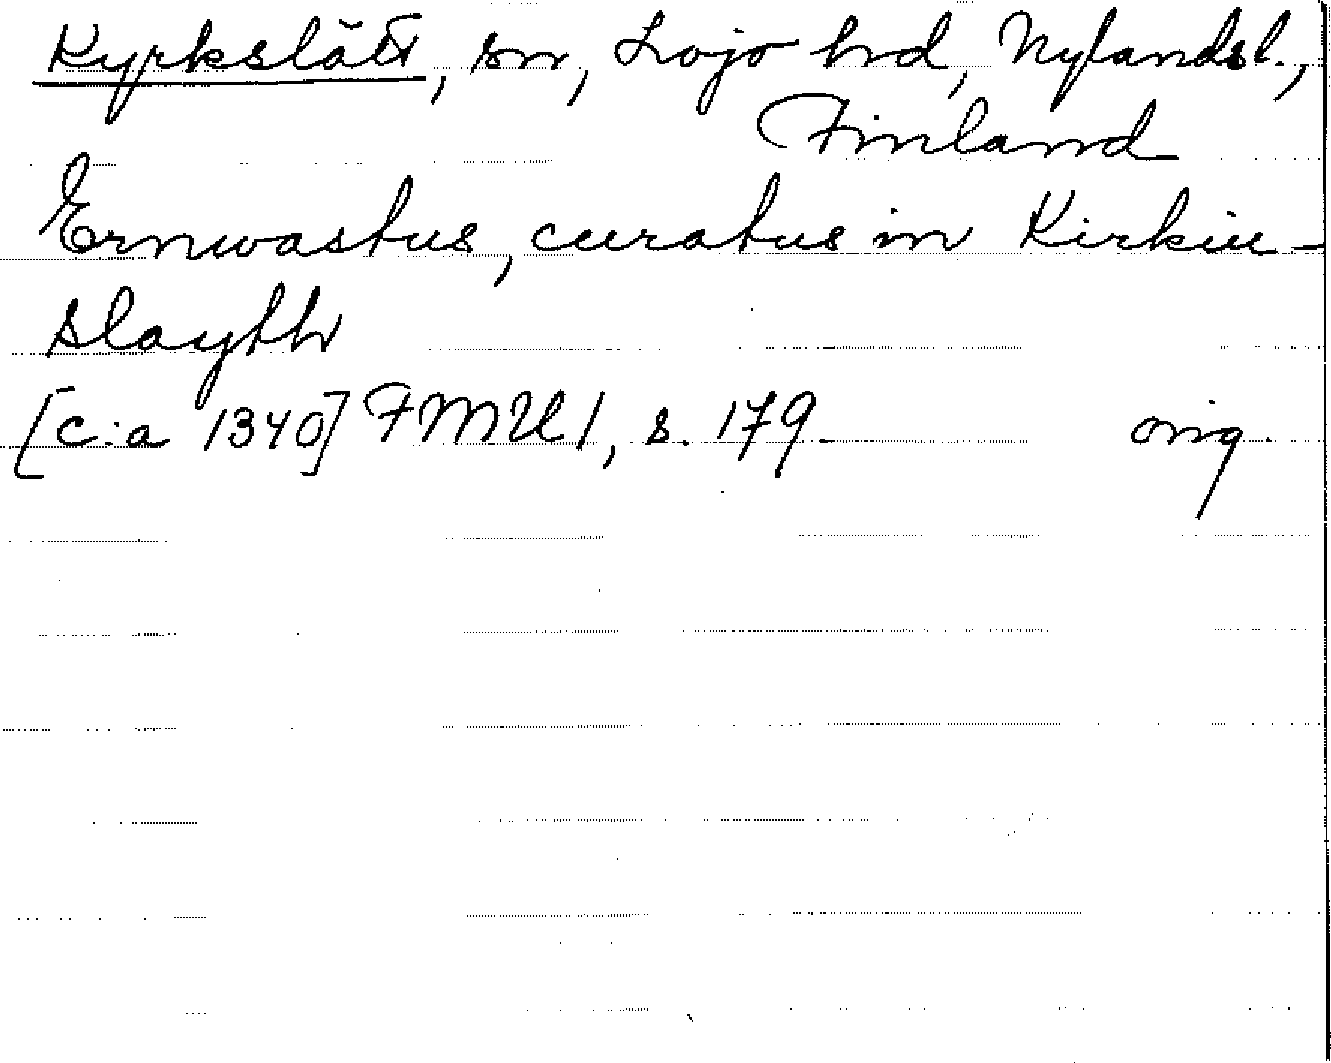 Kyrkslätt, sn, Lojo hd, Nylandsl.,
Finland
Ernwastus, curatus in Kirkiu-
slayth
[c:a 1340] FMU 1, s. 179. orig.